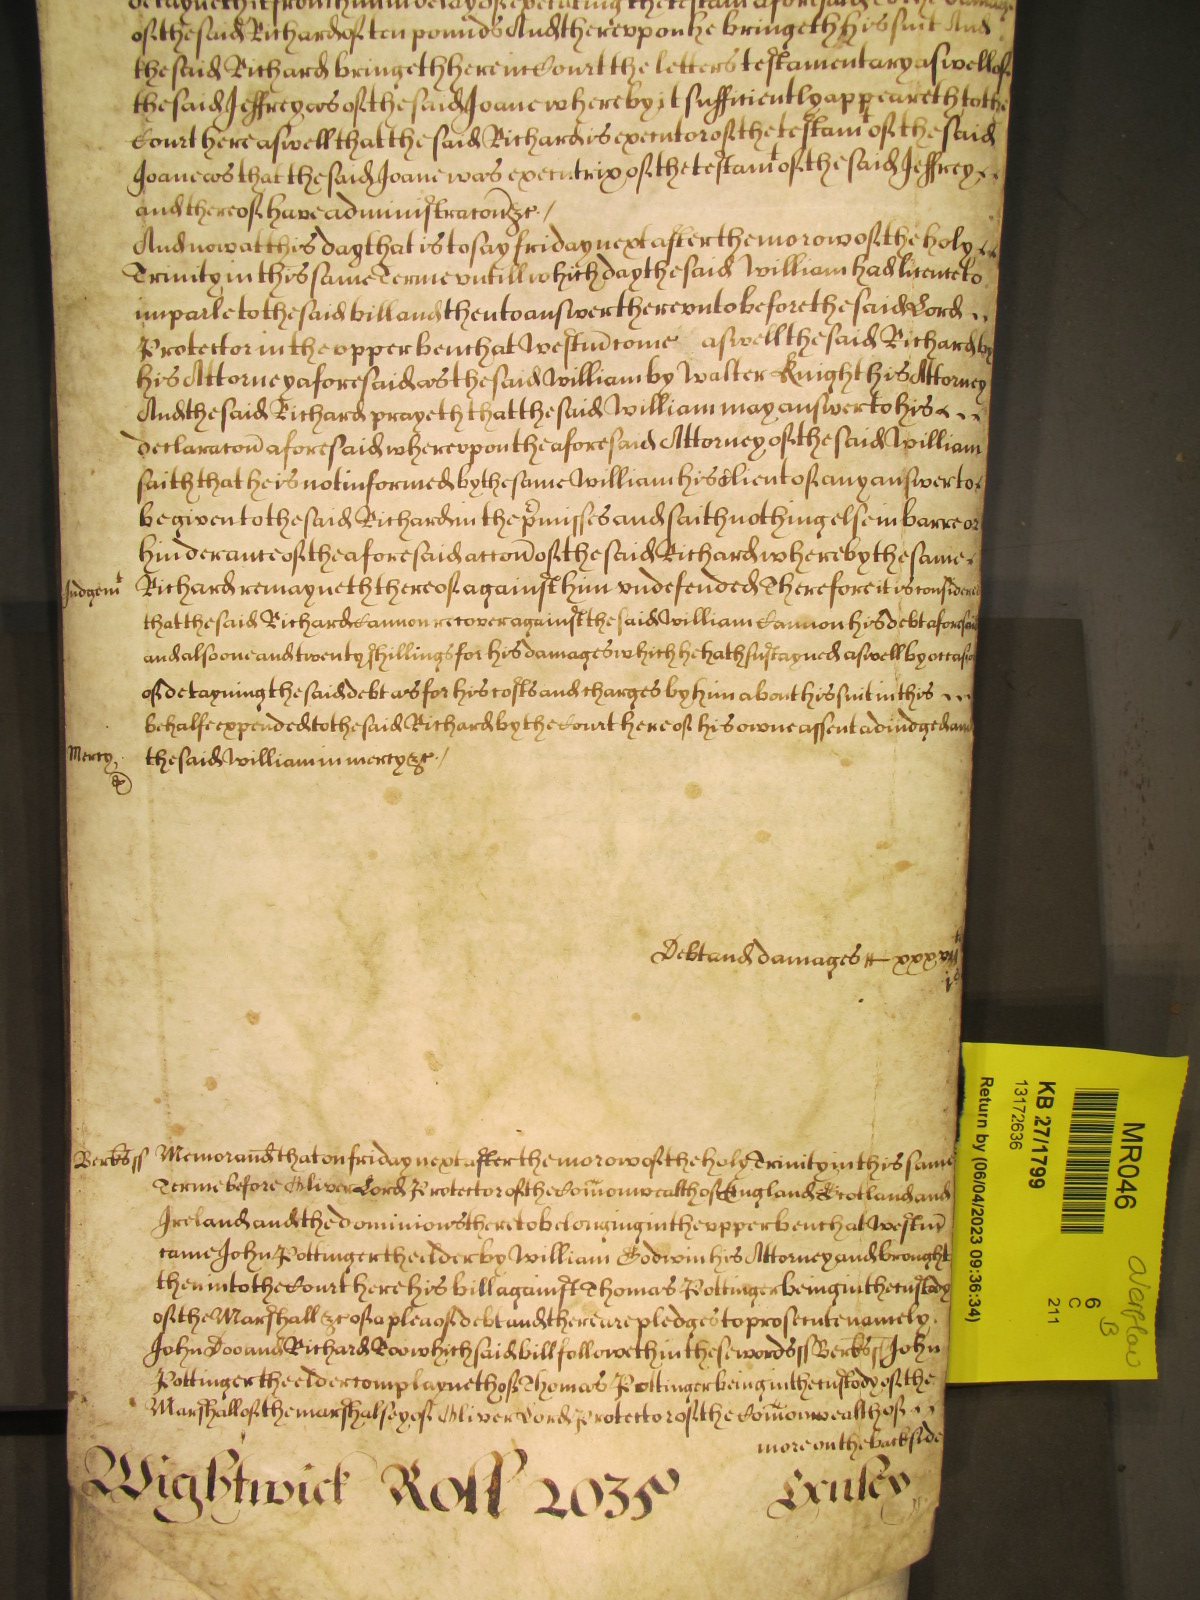 of the said Richard of ten pounds And therevpon he bringeth his suit And
the said Richard bringeth here in Court the letters testamentary aswell of
the said Jeffrey as of the said Joane whereby it sufficiently appeareth to the
Court here aswell that the said Richard is executor of the testamt of the said
Joane as that the said Joane was executrix of the testamt of the said Jeffrey
and thereof have administracon &c /
And now at this day that is to say friday next after the morow of the holy
Trinity in this same Terme vntill which day the said William had licence to
imparle to the said bill and then to answer therevnto before the said Lord
Protector in the vpper bench at Westm come aswell the said Richard by
his Attorney aforesaid as the said William by Walter Knight his Attorney
And the said Richard prayeth that the said William may answer to his
declaracon aforesaid wherevpon the aforesaid Attorney of the said William
saith that he is not informed by the same William his Client of any answer to
be given to the said Richard in the pmisses and saith nothing else in barre or
hinderance of the aforesaid accon of the said Richard whereby the same
Judgemt Richard remayneth thereof against him vndefended Therefore it is considered
that the said Richard Cannon recover against the said William Cannon his debt aforesaid
and also one and twenty shillings for his damages which he hath sustayned aswell by occasion
of detayning the said debt as for his costs and charges by him about his suit in this
behalfe expended to the said Richard by the Court here of his owne assent adiudged and
Mercy the said William in mercy &c /
Debt and damages
Berks ss Memorand that on friday next after the morow of the holy Trinity in this same
Terme before Oliver Lord Protector of the Comonwealth of England Scotland and
Ireland and the dominions thereto belonging in the vpper bench at Westm
came John Pottinger the elder by William Godwin his Attorney and brought
then into the Court here his bill against Thomas Pottinger being in the custody
of the Marshall &c of a plea of debt and there are pledges to prosecute namely
John Doo and Richard Roo which said bill followeth in these words ss Berks ss John
Pottinger the elder complayneth of Thomas Pottinger being in the custody of the
Marshall of the marshalsey of Oliver Lord Protector of the Comonwealth of
more on the backside
Wightwick Roll 2035
MR046
KB 27/1799
13172636
Return by (06/04/2023 09:36:34)
6
C
211
B
Overflow